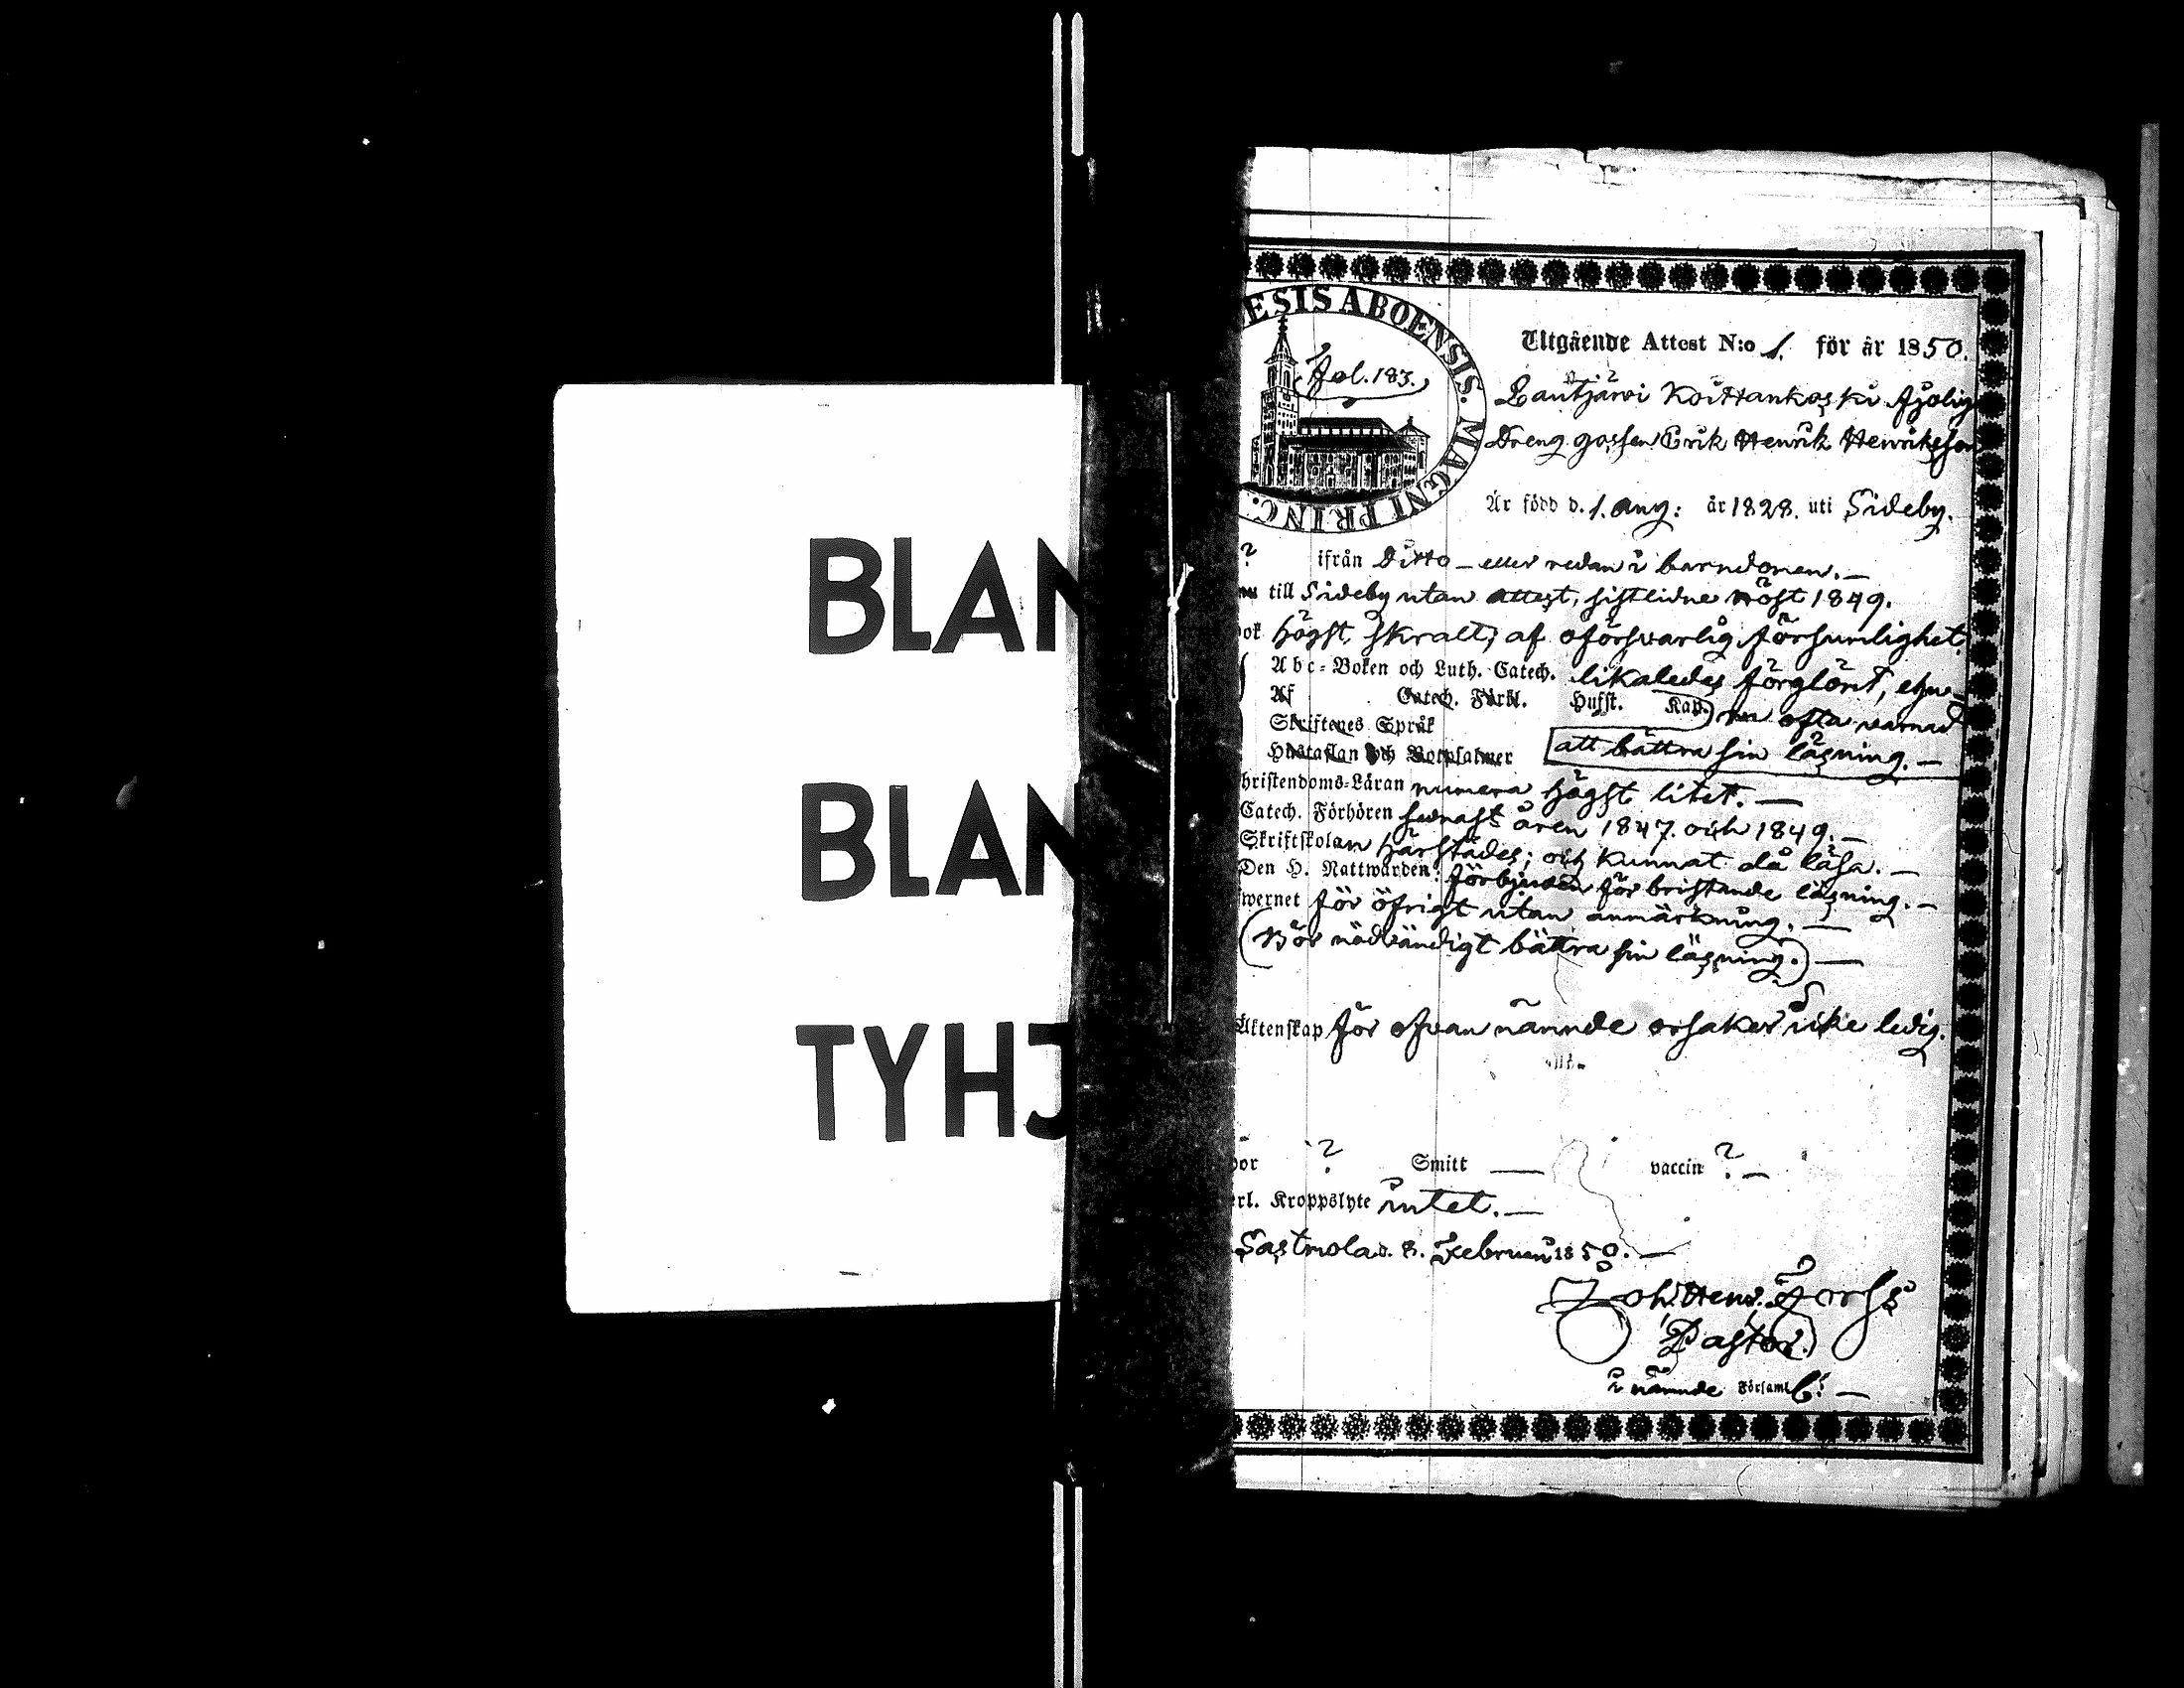 BLAN
BLAN
TYHJ
ESIS ABOENSIS. MAGNI PRINC.
Fol. 183.
Utgående Attest N:o 1. för år 1850.
Lautjärvi Koittankoski
Dreng gossen Erik Henrik Henriksson
Är född d. 1. Aug: år 1828. uti Sideby.
? ifrån Ditto – eller redan i barndomen. –
till Sideby utan attest, sistlidne höst 1849.
ok högst skralt, af oförsvarlig försumlighet.
Abc-Boken och Luth. Catech. likaledes förglömt, ehu-
Af Catech. Förkl. Husst. Kap. ru ofta varnad
Skriftenes Språk
Hustaflan och Botpsalmer att bättra sin läsning. –
hristendoms-Läran numera högst litet. –
Catech. Förhören senast åren 1847. och 1849. –
Skriftskolan härstädes; och kunnat då läsa. –
Den H. Nattwarden: förbjuden för bristande läsning. –
wernet för öfrigt utan anmärkning. –
(Bör nödvändigt bättra sin läsning.) –
Äktenskap för ofvan nämnde orsaker icke ledig.
por ? Smitt — vaccin ? –
rl. Kroppslyte intet. –
Sastmola d. 8. Februari 1850. –
Joh. Henr. Forss
Pastor.
i nämnde Församl: –